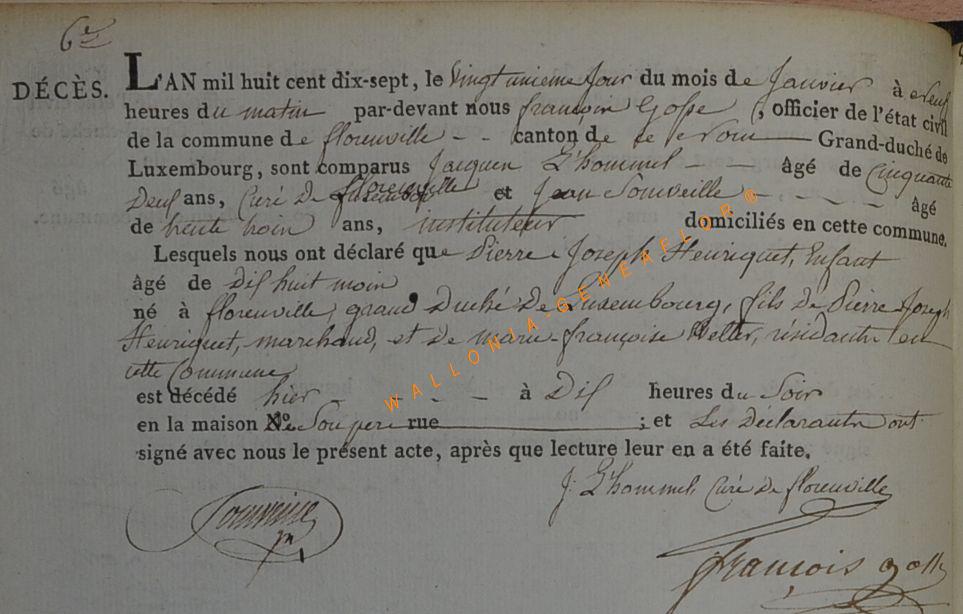 6e
DÉCÈS.
L'AN mil huit cent dix-sept, le vingt unieme jour du mois de Janvier à neuf
heures du matin par-devant nous françois Gosse, officier de l'état civil
de la commune de florenville - - canton de Grand-duché de
Luxembourg, sont comparus Jacques L'hommel - - âgé de Cinquante
Deux ans, Curé de florenville et Jean Somveille - - - - âgé
de trente trois ans, instituteur domiciliés en cette commune.
Lesquels nous ont déclaré que Pierre Joseph Henriquet, Enfant
âgé de Dix huit mois
né à florenville, grand Duché de Luxembourg, fils de Pierre Joseph
Henriquet, marchand, et de marie-françoise résidants en
cette Commune
est décédé hier - - - - à Dix heures du Soir
en la maison De Son pere rue ; et Les Déclarants ont
signé avec nous le présent acte, après que lecture leur en a été faite.
J. L'hommel, Curé De florenville
Somveille
françois gosse
WALLONIA-GENEAFLOR®